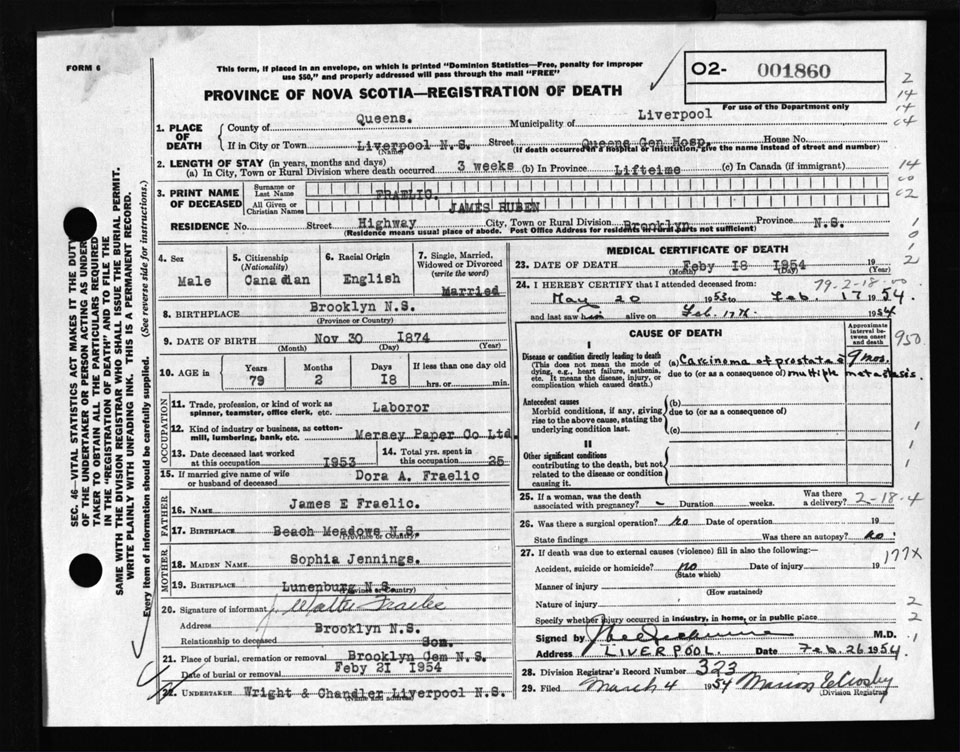 FORM 6
This form, if placed in an envelope, on which is printed "Dominion Statistics—Free, penalty for improper
use $50," and properly addressed will pass through the mail "FREE"
O2- 001860
For use of the Department only
PROVINCE OF NOVA SCOTIA—REGISTRATION OF DEATH
1. PLACE OF DEATH
County of Queens. Municipality of Liverpool
If in City or Town Liverpool N.S. Street Queens Gen Hosp. House No.
(Name) (If death occurred in a hospital or institution, give the name instead of street and number)
2. LENGTH OF STAY (in years, months and days)
(a) In City, Town or Rural Division where death occurred 3 weeks (b) In Province Lifteime (c) In Canada (if immigrant)
3. PRINT NAME OF DECEASED
Surname or Last Name FRAELIC.
All Given or Christian Names JAMES RUBEN
RESIDENCE No. Street Highway City, Town or Rural Division Brooklyn Province N.S.
(Residence means usual place of abode. Post Office Address for residents in rural parts not sufficient)
4. Sex
Male
5. Citizenship
(Nationality)
Canadian
6. Racial Origin
English
7. Single, Married, Widowed or Divorced
(write the word)
Married
8. BIRTHPLACE Brooklyn N.S.
(Province or Country)
9. DATE OF BIRTH Nov 30 1874
(Month) (Day) (Year)
10. AGE in
Years Months Days If less than one day old
79 2 18 hrs. or min.
OCCUPATION
11. Trade, profession, or kind of work as
spinner, teamster, office clerk, etc. Laboror
12. Kind of industry or business, as cotton-
mill, lumbering, bank, etc. Mersey Paper Co Ltd.
13. Date deceased last worked
at this occupation 1953
14. Total yrs. spent in
this occupation 25
15. If married give name of wife
or husband of deceased Dora A. Fraelic
FATHER
16. NAME James E Fraelic.
17. BIRTHPLACE Beach Meadows N.S.
(Province or Country)
MOTHER
18. MAIDEN NAME Sophia Jennings.
19. BIRTHPLACE Lunenburg N.S.
(Province or Country)
20. Signature of informant J. Walter Fraelic
Address Brooklyn N.S.
Relationship to deceased Son.
21. Place of burial, cremation or removal Brooklyn Cem N.S.
Date of burial or removal Feby 21 1954
22. UNDERTAKER Wright & Chandler Liverpool N.S.
(Name and address)
MEDICAL CERTIFICATE OF DEATH
23. DATE OF DEATH Feby 18 1954 19
(Month) (Day) (Year)
79-2-18-00
24. I HEREBY CERTIFY that I attended deceased from:
May 20 1953 to Feb. 17 1954.
and last saw him alive on Feb. 17th. 1954
CAUSE OF DEATH
Approximate interval between onset and death
I
Disease or condition directly leading to death
(This does not mean the mode of
dying, e.g., heart failure, asthenia,
etc. It means the disease, injury, or
complication which caused death.)
(a) Carcinoma of prostata 9 mos.
due to (or as a consequence of) multiple metastasis.
Antecedent causes
Morbid conditions, if any, giving
rise to the above cause, stating the
underlying condition last.
(b)
due to (or as a consequence of)
(c)
II
Other significant conditions
contributing to the death, but not
related to the disease or condition
causing it.
25. If a woman, was the death
associated with pregnancy? - Duration weeks. Was there a delivery?
2-18-4
26. Was there a surgical operation? no Date of operation 19
State findings Was there an autopsy? no
27. If death was due to external causes (violence) fill in also the following:—
Accident, suicide or homicide? no Date of injury 19
(State which)
177X
Manner of injury
(How sustained)
Nature of injury
Specify whether injury occurred in industry, in home, or in public place
Signed by M.D.
Address LIVERPOOL. Date Feb. 26 1954.
28. Division Registrar's Record Number 323
29. Filed March 4 1954 Crosby
(Division Registrar)
SEC. 46—VITAL STATISTICS ACT MAKES IT THE DUTY
OF THE UNDERTAKER OR PERSON ACTING AS UNDER-
TAKER TO OBTAIN ALL THE PARTICULARS REQUIRED
IN THE "REGISTRATION OF DEATH" AND TO FILE THE
SAME WITH THE DIVISION REGISTRAR WHO SHALL ISSUE THE BURIAL PERMIT.
WRITE PLAINLY WITH UNFADING INK. THIS IS A PERMANENT RECORD.
Every item of information should be carefully supplied. (See reverse side for instructions.)
2
14
14
04
14
00
02
1
0
1
2
950
1
1
2
2
1